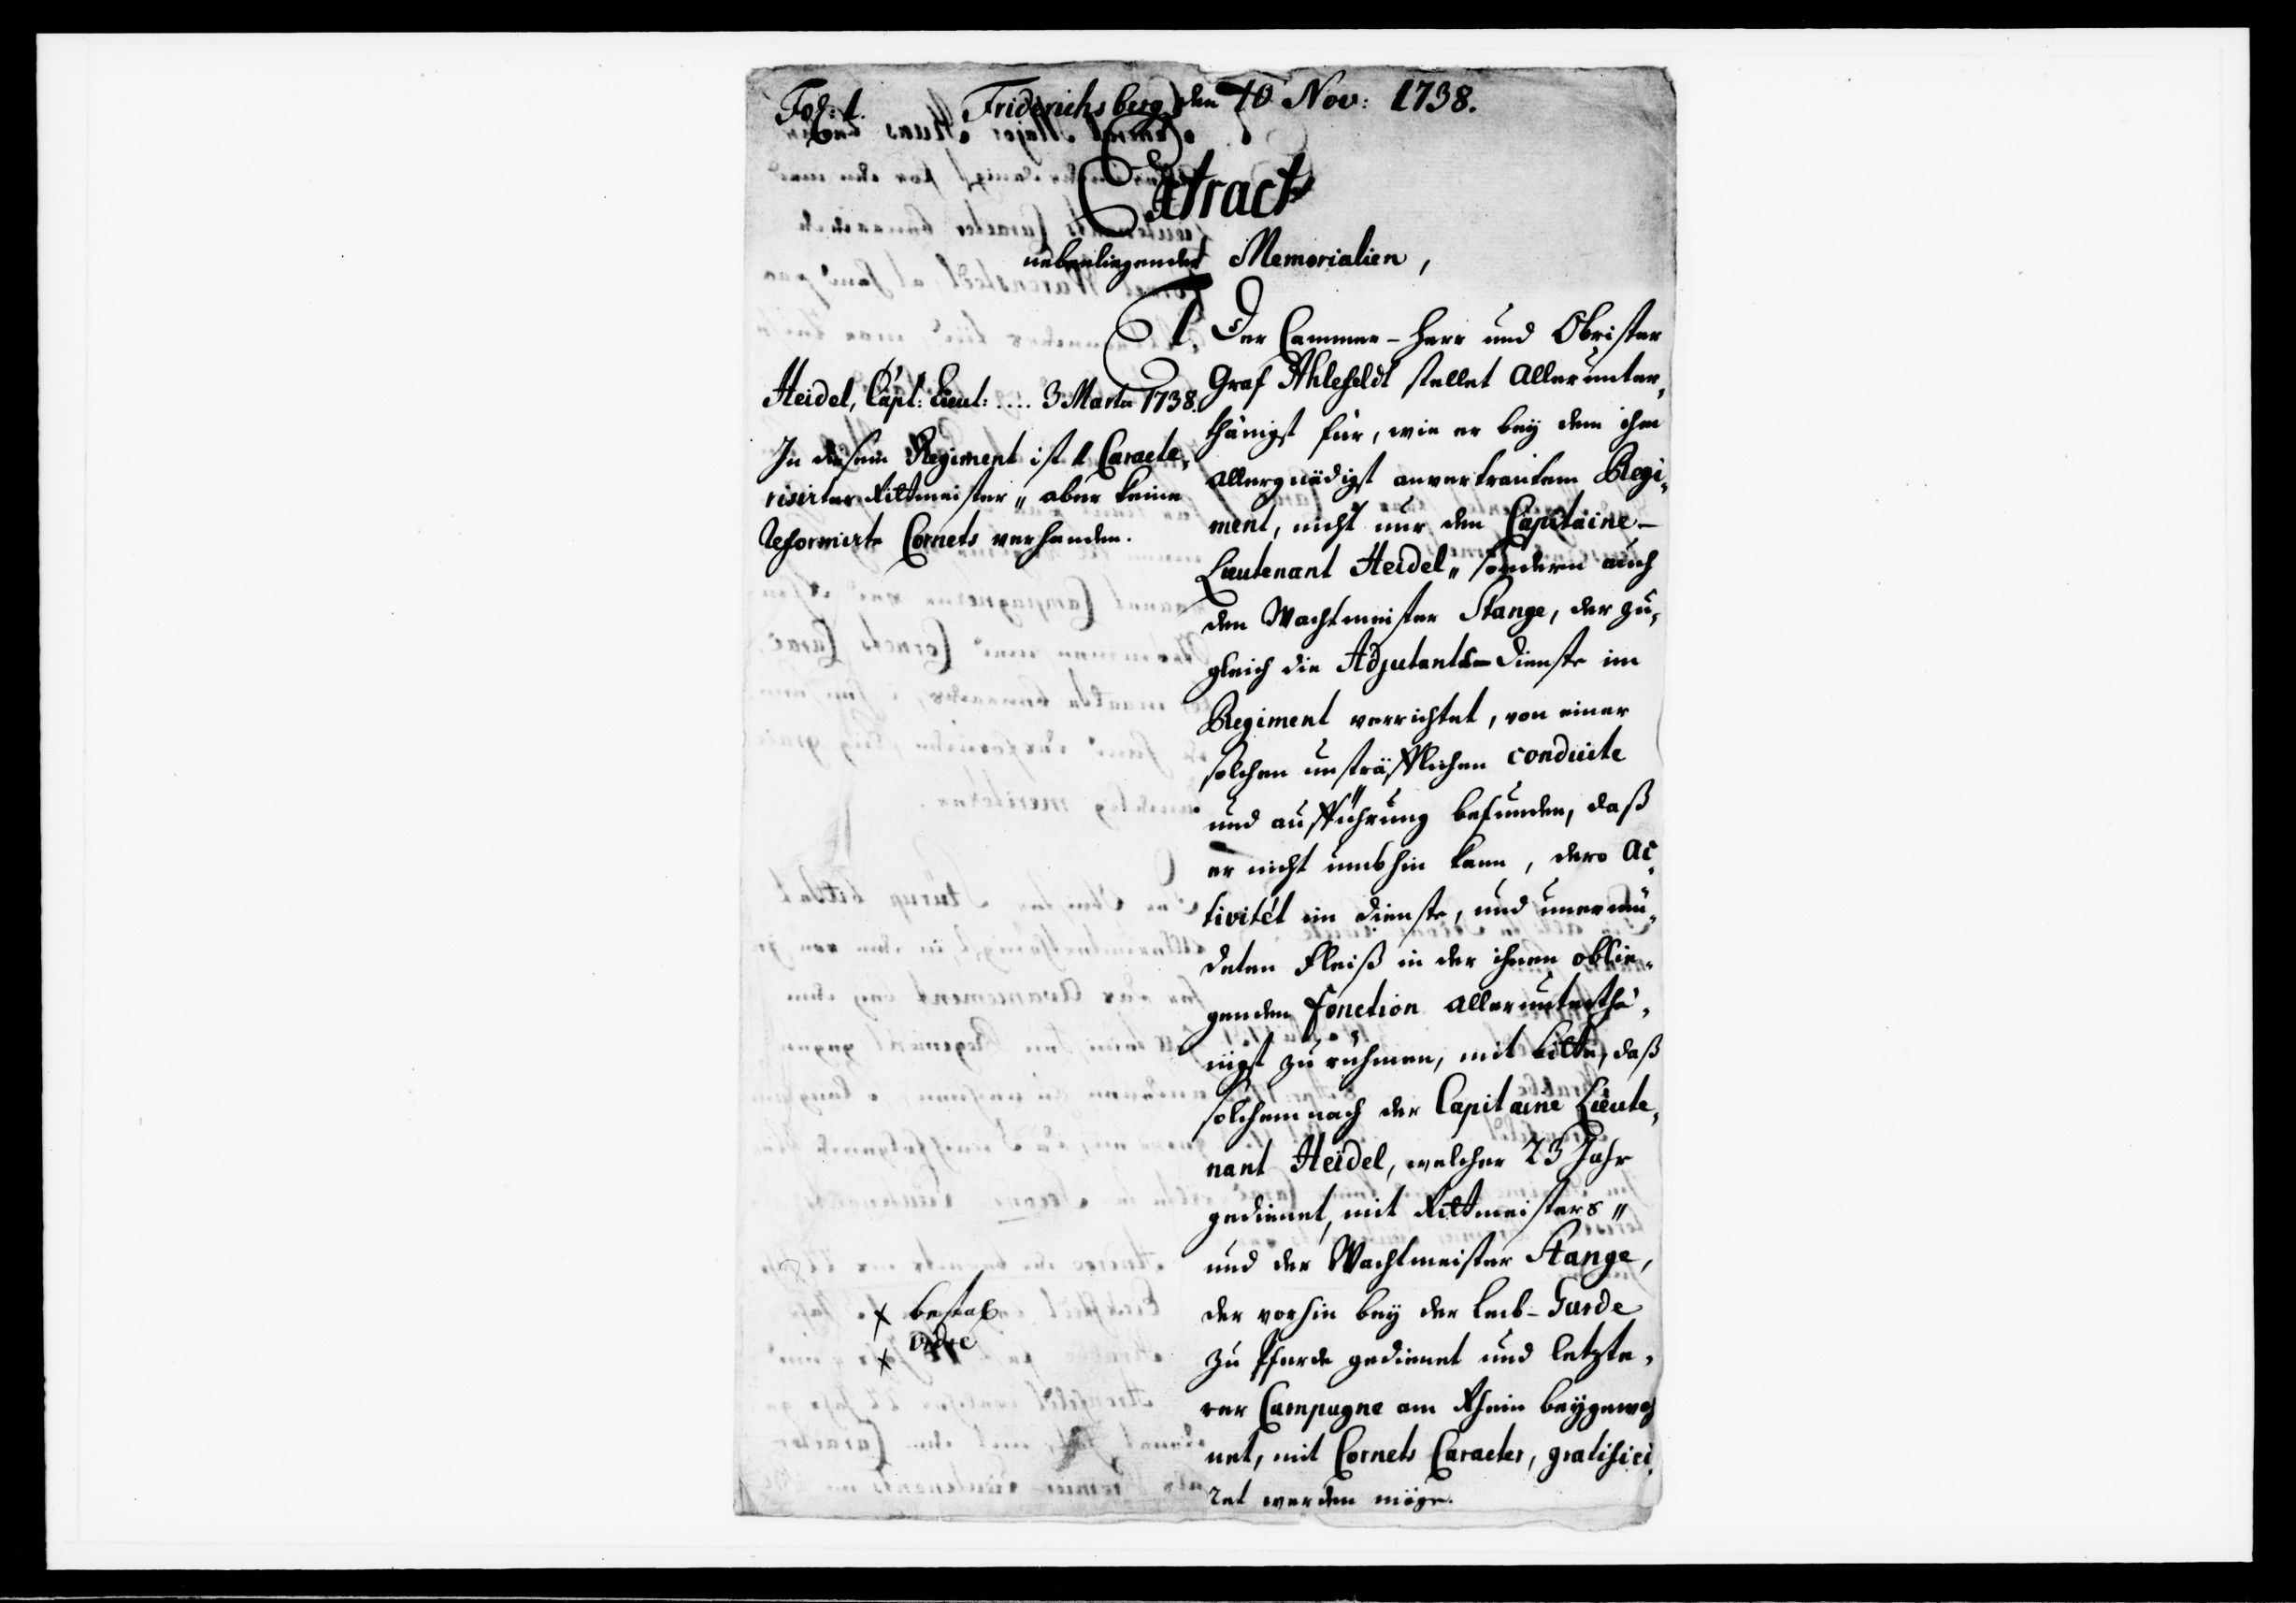 Fol: 1. Friderichsberg den 10 Nov: 1738.
Extract
nebenliegender Memorialien,
1. Der Cammer-Herr und Obrister
Graf Ahlefeldt stellet allerunter,
thänigst für, wie er bey dem ihm
allergnädigst anvertrautem Regi,
ment, nicht nur den Capitaine-
Lieutenant Heidel, sondern auch
den Wachtmeister Stange, der zu,
gleich die Adjutants-Dienste im
Regiment verrichtet, von einer
solchen unsträfflichen conduite
und aufführung befunden, daß
er nicht umbhin kann, dero Ac,
tivitét im Dienste, und unermü,
deten Fleiß in der ihnen oblie,
genden Fonction allerunterthä,
nigst zu rühmen, mit bitte, daß
solchemnach der Capitaine Lieute,
nant Heidel, welcher 23 Jahr
gedienet, mit Rittmeisters
und der Wachtmeister Stange,
der vorhin bey der Leib-Garde
zu Pferde gedienet und letzte,
rer Campagne am Rhein beygewoh
net, mit Cornets Caracter, gratifici,
ret werden möge.
Heidel, Capt: Lieut: .... 3 Martii 1738.
In diesem Regiment ist 1 Caracte,
risirter Rittmeister, aber keine
Reformirte Cornets verhanden.
x bestal
x ordre